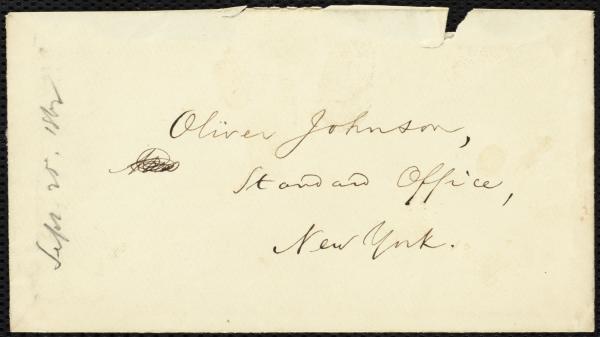 Oliver Johnson,
Standard Office,
New York.
Sept. 25. 1862